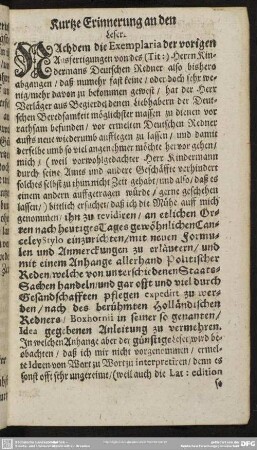 Kurtze Erinnerung an den
Leser.
NAchdem die Exemplaria der vorigen
Ausfertigungen von des (Tit:) Herrn Kin-
dermans Deutschen Redner also bishero
abgangen / daß nunmehr fast keine / oder doch sehr we-
nig / mehr davon zu bekommen gewest / hat der Herr
Verläger aus Begierde denen Liebhabern der Deut-
schen Beredsamkeit möglichster massen zu dienen vor
rathsam befunden / vor ermelten Deutschen Redner
auffs neue wiederumb aufflegen zu lassen / und damit
derselbe umb so viel angenehmer möchte hervor gehen /
mich / (weil vorwohlgedachter Herr Kindermann
durch seine Amts und andere Geschäffte verhindert
solches selbst zu thun nicht Zeit gehabt / und also / daß es
einem andern auffgetragen würde / gerne geschehen
lassen /) bittlich ersucht / daß ich die Mühe auff mich
genommen / ihn zu revidiren / an etlichen Or-
ten nach heutiges Tages gewöhnlichen Can-
celey Stylo einzurichten / mit neuen Formu-
len und Anmerckungen zu erläutern / und
mit einem Anhange allerhand Politischer
Reden / welche von unterschiedenen Staats-
Sachen handeln / und gar offt und viel durch
Gesandschafften pflegen expedirt zu wer-
den / nach des berühmten Holländischen
Redners / Boxhornii in seiner so genanten /
Idea gegebenen Anleitung zu vermehren.
In welchen Anhange aber der günstige Leser wird be-
obachten / daß ich mir nicht vorgenommen / ermel-
te Ideen von Wort zu Wort zu interpretiren / denn es
sonst offt sehr ungereimt / (weil auch die Lat: edition
so